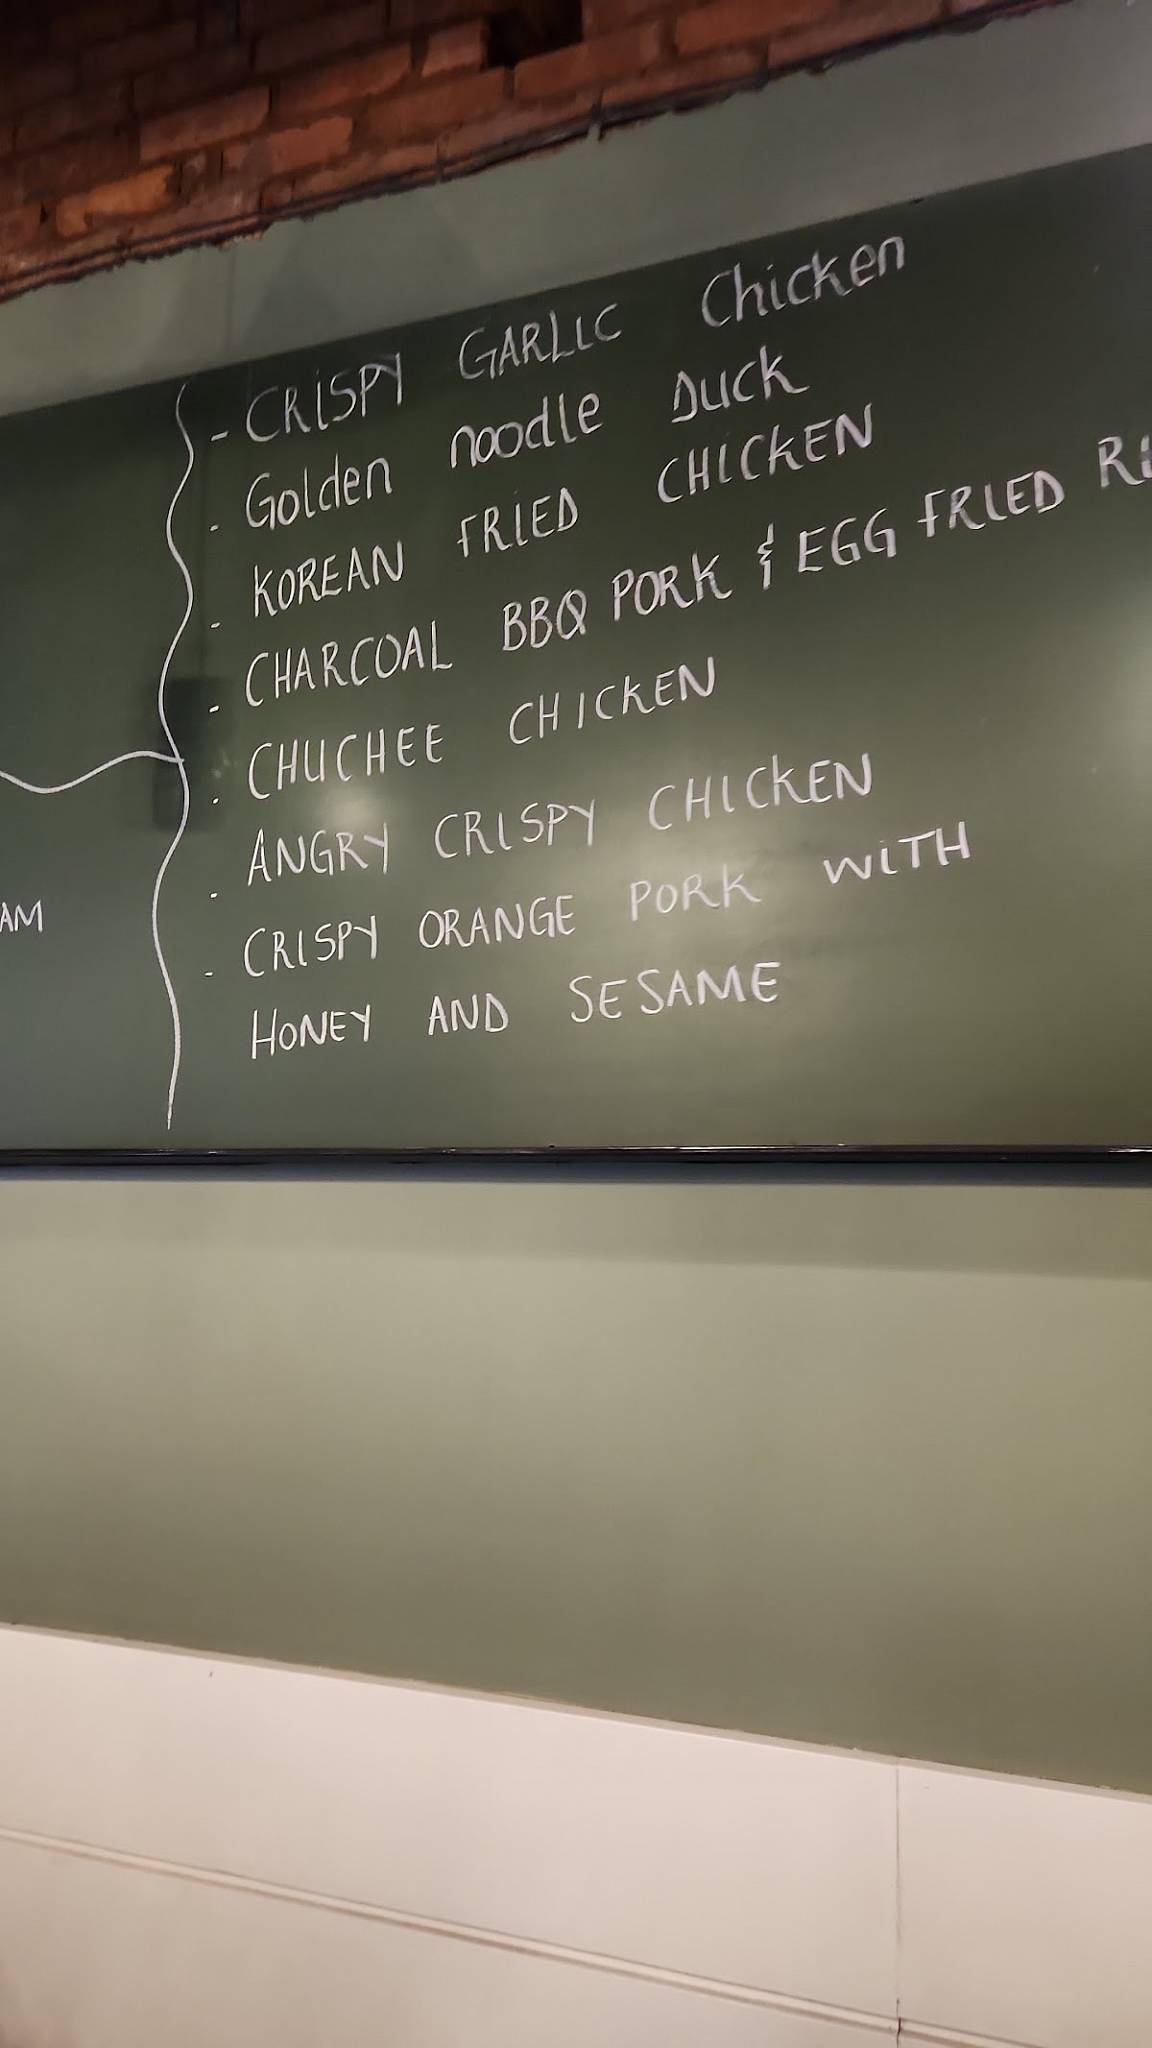 - CRISPY GARLIC Chicken
- Golden noodle Duck
- KOREAN FRIED CHICKEN
- CHARCOAL BBQ PORK & EGG FRIED
- CHUCHEE CHICKEN
- ANGRY CRISPY CHICKEN
- CRISPY ORANGE PORK WITH
HONEY AND SESAME